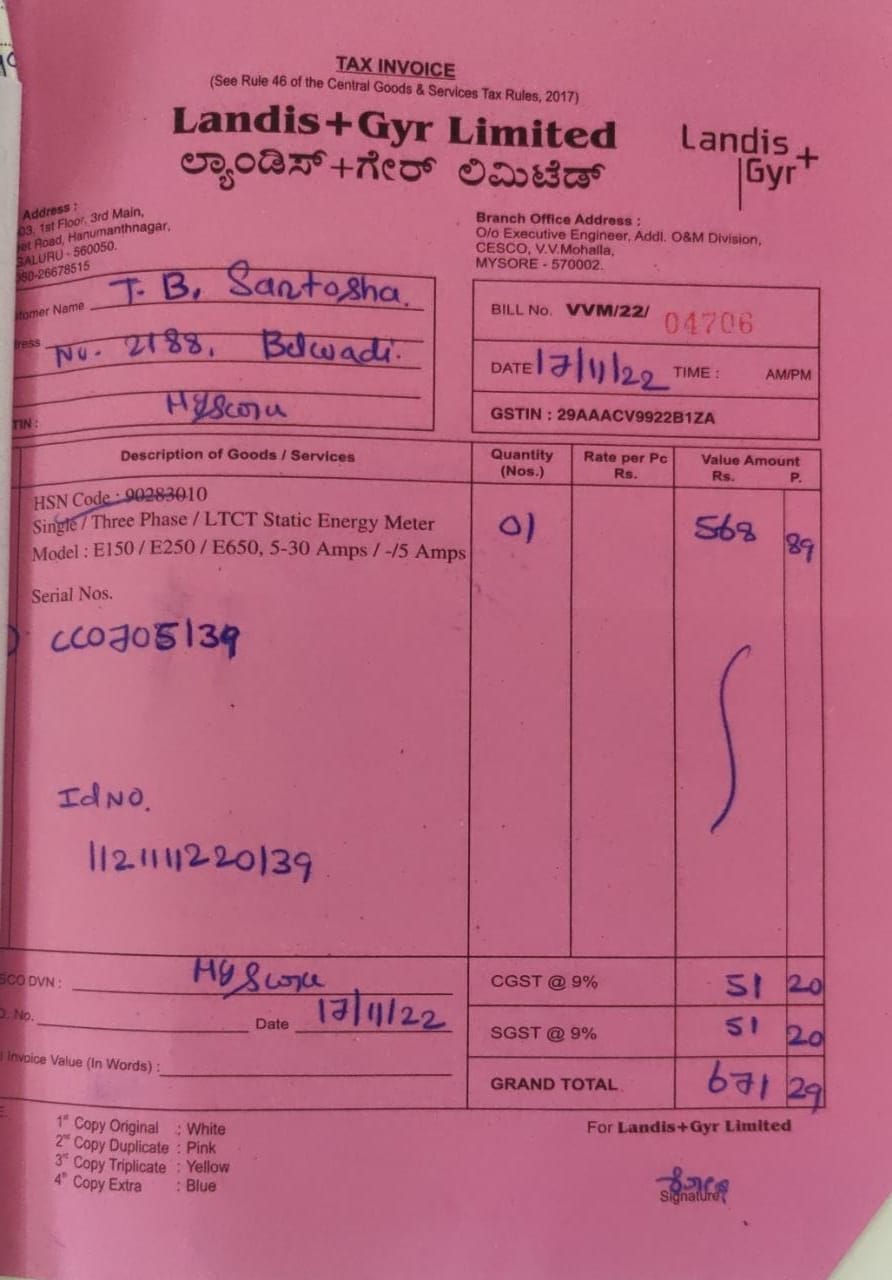 TAX INVOICE
(See Rule 46 of the Central Goods & Services Tax Rules, 2017)
Landis+Gyr Limited
ಲ್ಯಾಂಡಿಸ್+ಗೇರ್ ಲಿಮಿಟೆಡ್
Landis
Gyr+
Address :
03, 1st Floor, 3rd Main,
et Road, Hanumanthnagar,
GALURU - 560050.
080-26678515
Branch Office Address :
O/o Executive Engineer, Addl. O&M Division,
CESCO, V.V.Mohalla,
MYSORE - 570002.
tomer Name T. B. Santosha.
ress No. 2188, Belwadi.
Mysore
TIN :
BILL No. VVM/22/ 04706
DATE 17/11/22 TIME : AM/PM
GSTIN : 29AAACV9922B1ZA
Description of Goods / Services Quantity (Nos.) Rate per Pc Rs. Value Amount Rs. P.
HSN Code : 90283010
Single / Three Phase / LTCT Static Energy Meter 01 568 89
Model : E150 / E250 / E650, 5-30 Amps / -/5 Amps
Serial Nos.
CC0705139
Id NO.
1121111220139
SCO DVN : Mysore
O. No. Date 17/11/22
l Invoice Value (In Words) :
CGST @ 9% 51 20
SGST @ 9% 51 20
GRAND TOTAL 671 29
1st Copy Original : White
2nd Copy Duplicate : Pink
3rd Copy Triplicate : Yellow
4th Copy Extra : Blue
For Landis+Gyr Limited
Signature